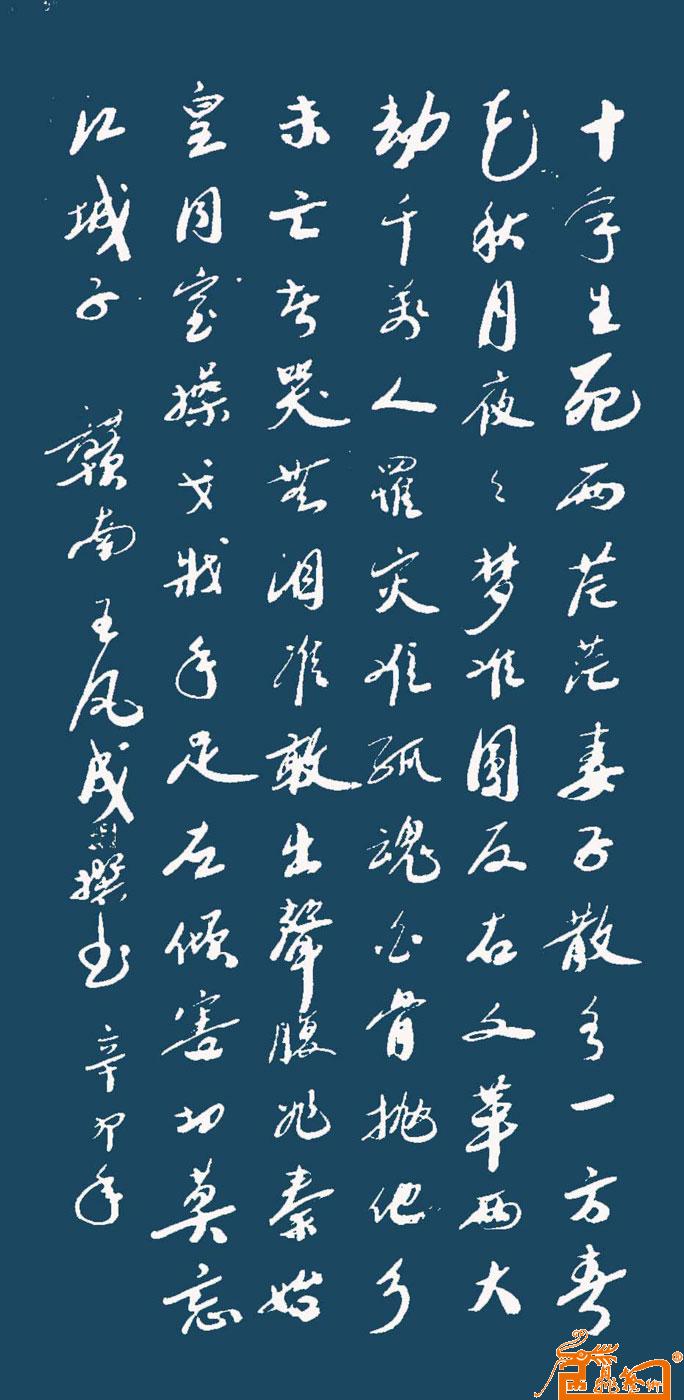 十年生死两茫茫妻子散各一方春
花秋月夜々梦难圆反右文革两大
劫千萬人罹灾难孤魂白骨抛他乡
未亡者哭無泪谁敢出聲腹非秦始
皇同室操戈戕手足左倾害切莫忘
江城子 赣南王凤成撰书 辛卯年